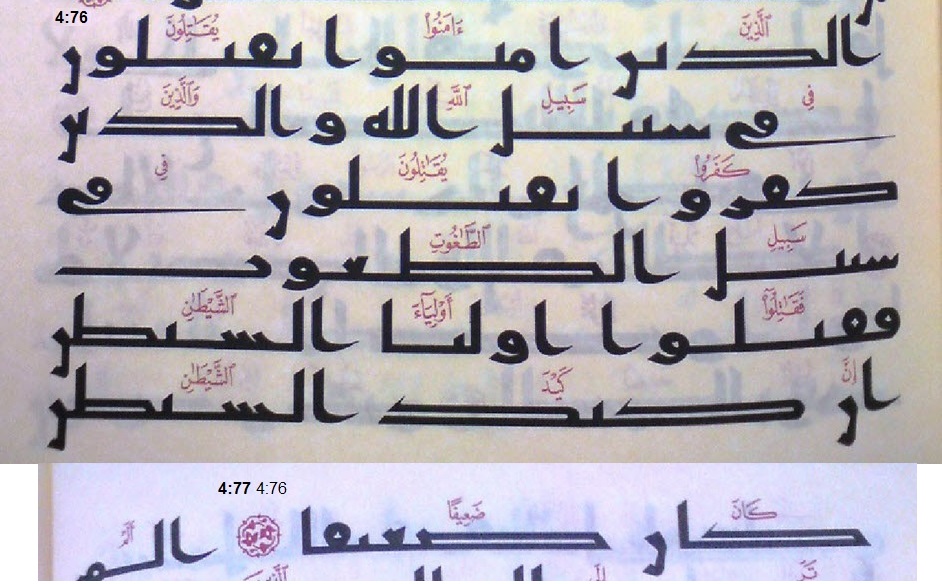 4:76
ٱلَّذِينَ ءَامَنُوا۟ يُقَـٰتِلُونَ
الدىں امىوا ىقىلوں
فِى سَبِيلِ ٱللَّهِ وَٱلَّذِينَ
فى سىىل الله والدىں
كَفَرُوا۟ يُقَـٰتِلُونَ فِى
كفروا ىقىلوں فى
سَبِيلِ ٱلطَّـٰغُوتِ
سىىل الطعوٮ
فَقَـٰتِلُوٓا۟ أَوْلِيَآءَ ٱلشَّيْطَـٰنِ
فقىلوا اولىا السىطں
إِنَّ كَيْدَ ٱلشَّيْطَـٰنِ
اں كىد السىطں
4:77 4:76
كَانَ ضَعِيفًا أَلَمْ
كاں صعىفا الم
تَرَ إِلَى ٱلَّذِينَ